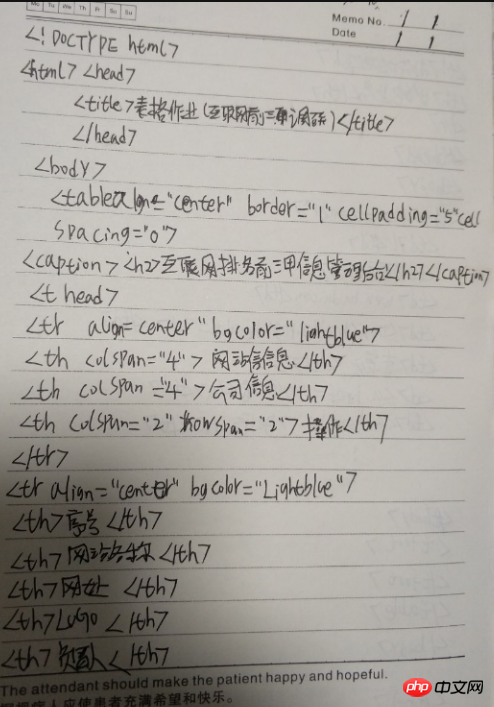 Mo Tu We Th Fr Sa Su
Memo No.
Date
<! DOCTYPE html>
<html> <head>
<title>表格作业(互联网前三单调酥)</title>
</head>
<body>
<table align="center" border="1" cellpadding="5" cell
spacing="0">
<caption><h2>互联网排名前三甲信息管理后台</h2></caption>
<t head>
<tr align=center" bgcolor="lightblue">
<th colspan="4">网站信息</th>
<th colspan="4">公司信息</th>
<th colspan="2" rowspan="2">操作</th>
</tr>
<tr align="center" bgcolor="Lightblue">
<th>序号</th>
<th>网站名称</th>
<th>网址</th>
<th>LoGO</th>
<th>负责人</th>
The attendant should make the patient happy and hopeful.
病人应使患者充满希望和快乐。
php中文网